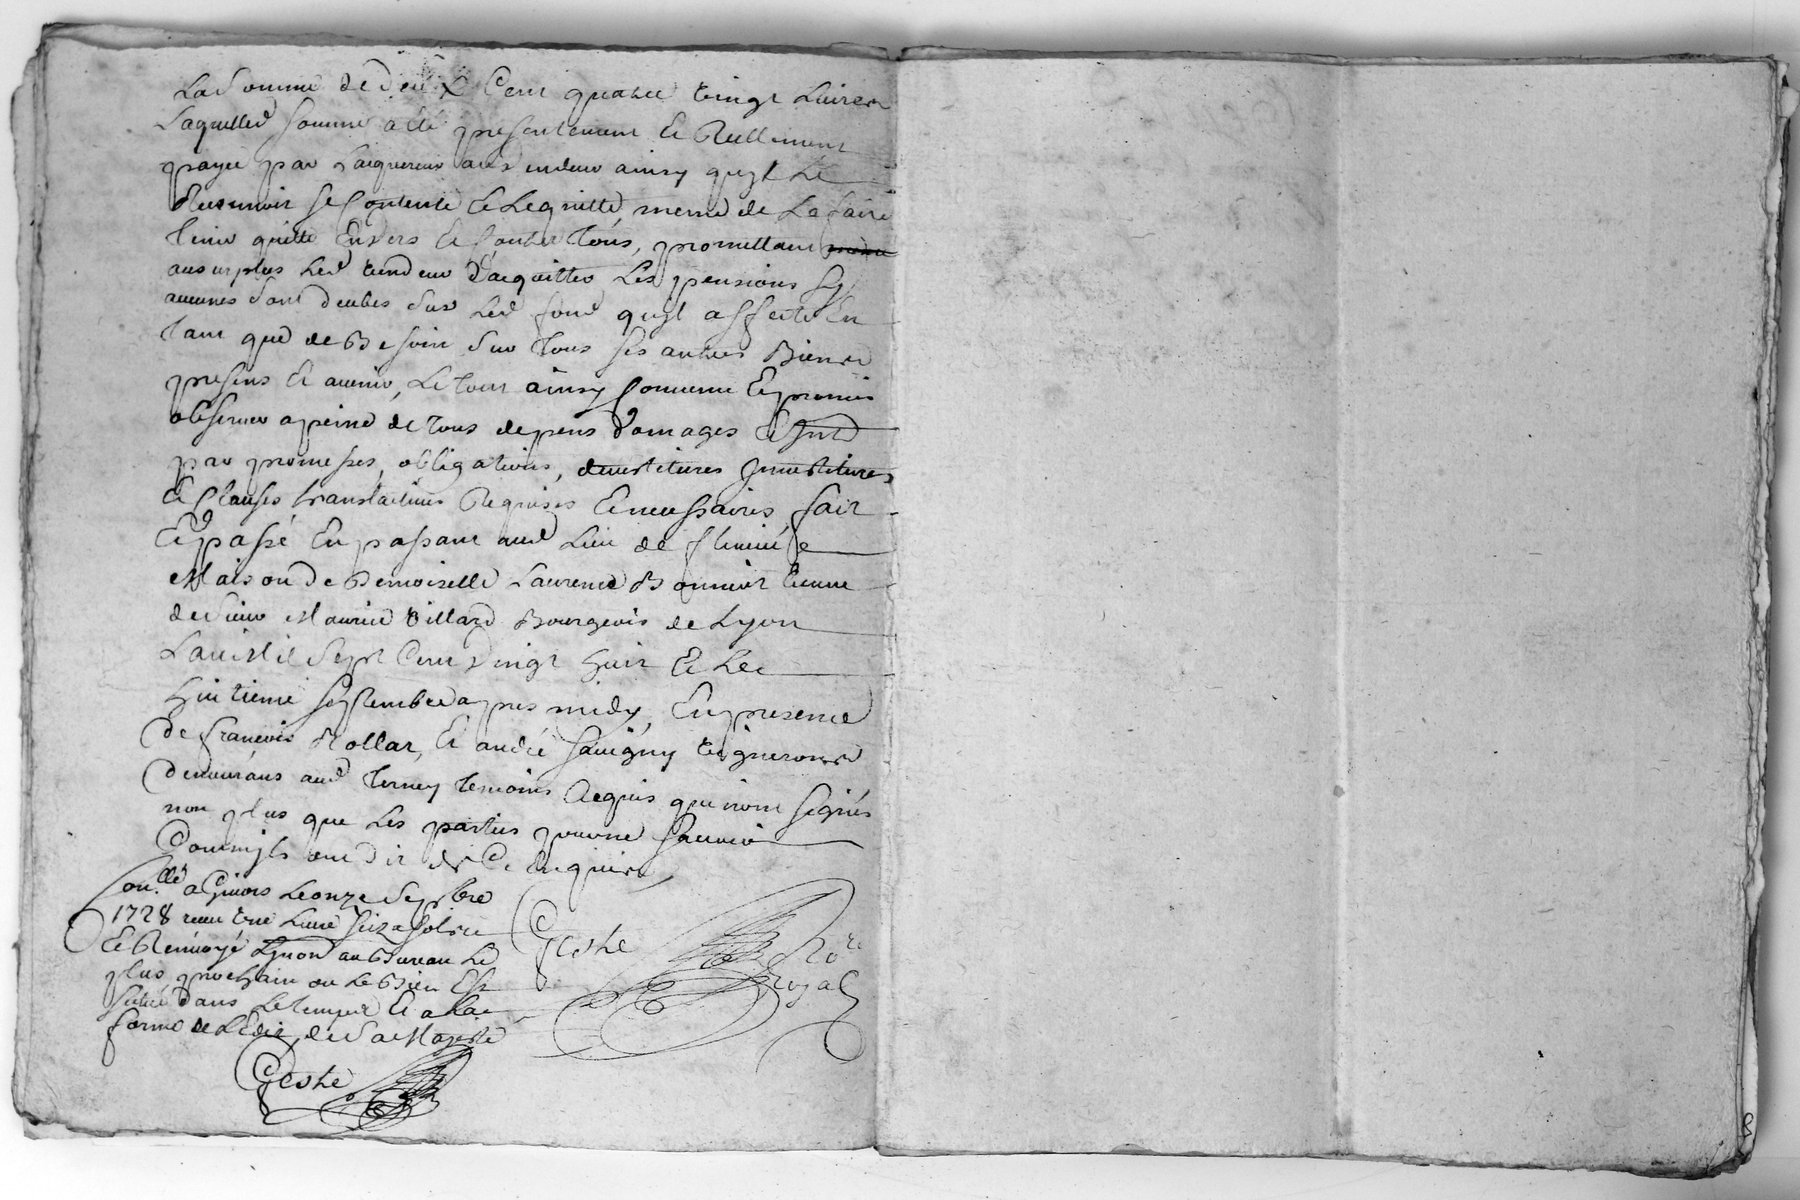 La somme de deux Cent quatre vingt livres
Laquelle somme a été presentement et Reellement
payée par l'aquereur aud vendeur ainsy quyl le
Reconnoit se Contente et le quitte, meme de La faire
tenir quitte Envers et Contre tous, promettant
au surplus led vendeur d'acquitter Les pensions sy
aucunes sont deubes sur led fond quyl affecte En
tant que de Besoin sur tous ses autres Biens
presens et avenir, Le tout ainsy Convenu et promis
observer a peine de tous depens domages et
par promesses, obligations, devestitures Jnvestitures
et Clauses translatives Requises et necessaires, fait
Et passé En passant aud Lieu de
Maison de Demoiselle Laurence Bonnivit veuve
de sieur Maurice Villard Bourgeois de Lyon
L'an Mil Sept Cent Vingt huit et Le
huitieme septembre apres midy, En presence
de francois Mollar, et andré Savigny vignerons
demeurans aud Terney temoins Requis qui n'ont signés
non plus que Les parties pour ne sauoir
Comm'jls ont dit de Ce Enquis
Con.llé a Givors Le onze Sep.bre
1728 receu une Livre seize sols
Et Renvoyé au Bureau Le
plus prochain ou Le Bien Est
situé dans Le temps Et a la
forme de L'Edit de Sa Majesté
Geste
No.re
Royal
Geste